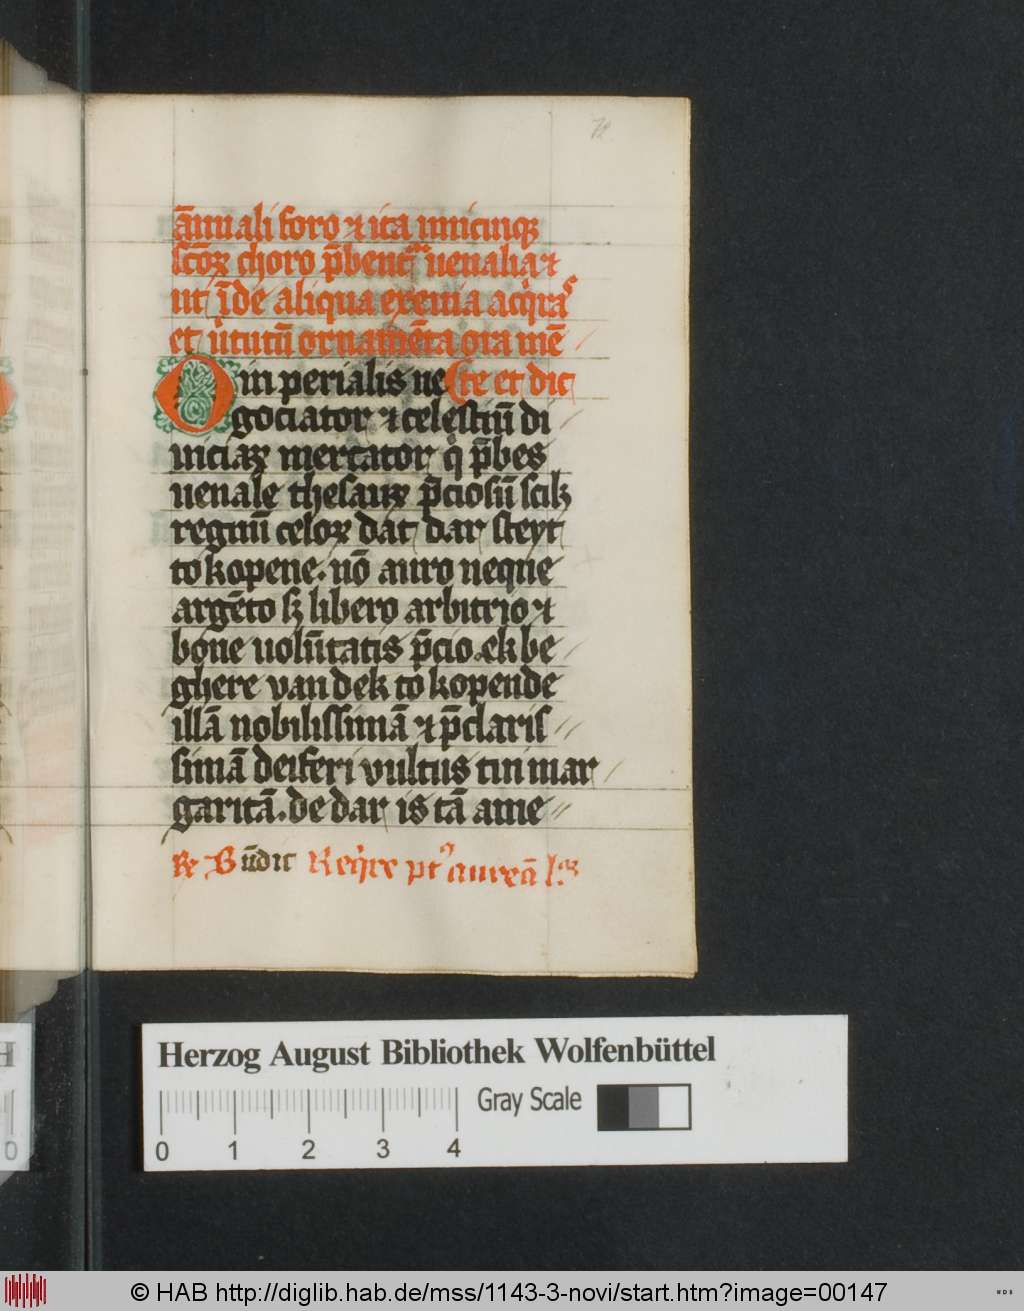 ānuali foro ⁊ ita unicuiqꝫ
scōꝝ choro p̄bent᷑ uenalia ⁊
ut īde aliqua exenia acq̇ras
et v̇tutū ornamēta ora mē
O in perialis ne (te et dic
gociator ⁊ celestiū di
uiciaꝝ mercator q̇ p̄bes
uenale thesauꝝ p̄ciosū scilꝫ
regnū celoꝝ dat dar steyt
to kopene. nō auro neque
argēto sꝫ libero arbitrio ⁊
bone uolūtatis p̄cio. ek be
ghere van dek to kopende
illā nobilissimā ⁊ p̄claris
simā deiferi vultus tui mar
garitā. de dar is tā ame
Req̇re aureā
Herzog August Bibliothek Wolfenbüttel
Gray Scale
0 1 2 3 4
© HAB http://diglib.hab.de/mss/1143-3-novi/start.htm?image=00147